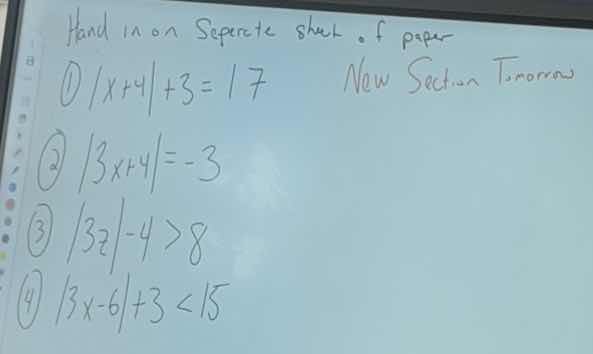 Hand in on Seperate sheet of paper
① |x+4|+3=17 New Section Tomorrow
② |3x+4|=-3
③ |3z|-4>8
④ |3x-6|+3<15